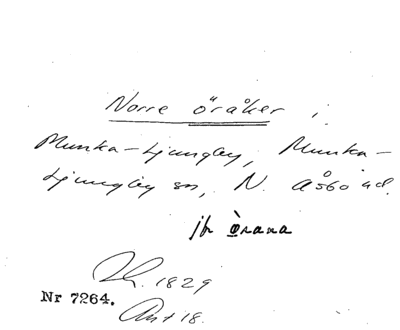 Norre öråker i
Munka-Ljungby, Munka-
Ljungby sn, N. Åsbo hd.
jfr Örana
1829
Nr 7264.
Akt 18.